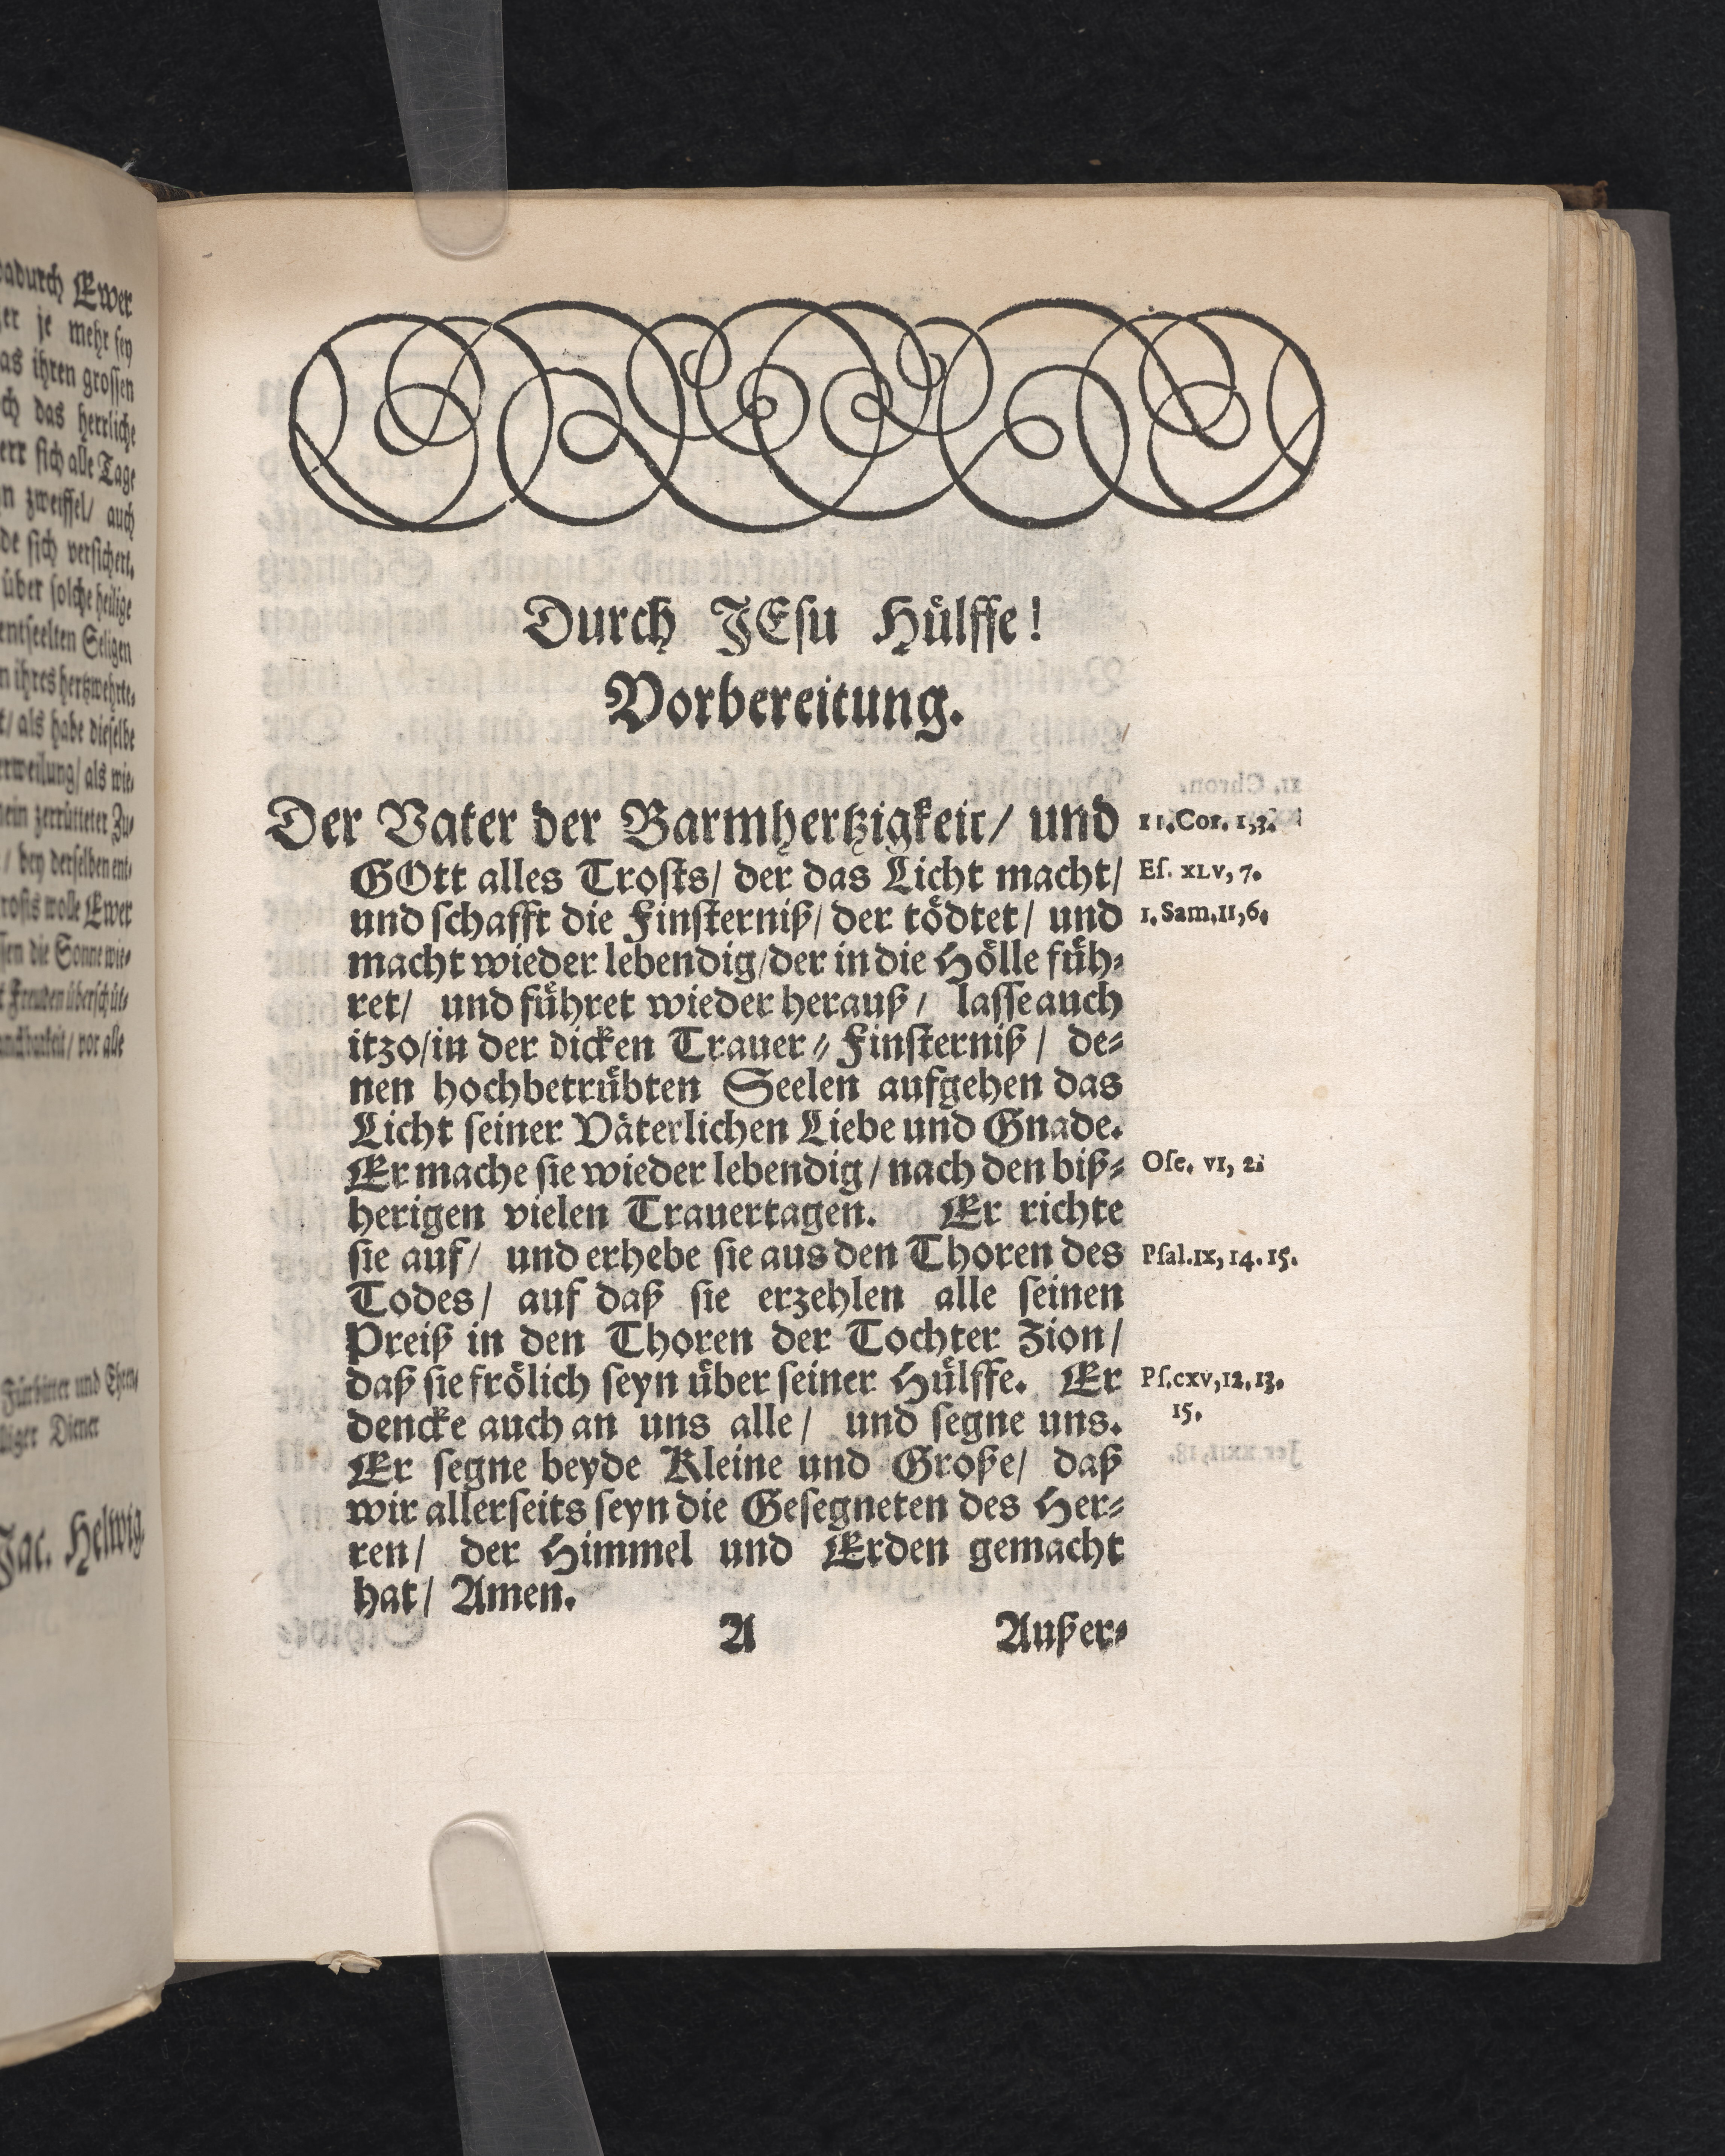 adurch Ewer
er je mehr sey
as ihren grossen
ch das herrliche
err sich alle Tage
n zweiffel/ auch
de sich versichert.
über solche heilige
entseelten Seligen
n ihres hertzwehrte⸗
t/ als habe dieselbe
rweilung/ als wie⸗
ein zerrütteter Zu⸗
/ bey derselben ent⸗
rosts wolle Ewer
sen die Sonne wie⸗
t Freuden überschüt⸗
nckbarkeit/ vor alle
Fürbitter und Ehren⸗
lliger Diener
Jac. Helwig.
Durch JEsu Hülffe!
Vorbereitung.
Der Vater der Barmhertzigkeit/ und 11. Cor. 1,3.
GOtt alles Trosts/ der das Licht macht/ Es. XLV, 7.
und schafft die Finsterniß/ der tödtet/ und 1. Sam. 11, 6.
macht wieder lebendig/der in die Hölle füh⸗
ret/ und führet wieder herauß/ lasse auch
itzo/in der dicken Trauer⸗Finsterniß/ de⸗
nen hochbetrübten Seelen aufgehen das
Licht seiner Väterlichen Liebe und Gnade.
Er mache sie wieder lebendig/ nach den biß⸗ Ose. VI, 2.
herigen vielen Trauertagen. Er richte
sie auf/ und erhebe sie aus den Thoren des Psal. IX, 14. 15.
Todes/ auf daß sie erzehlen alle seinen
Preiß in den Thoren der Tochter Zion/
daß sie frölich seyn über seiner Hülffe. Er Ps. CXV, 12. 13.
dencke auch an uns alle/ und segne uns. 15.
Er segne beyde Kleine und Große/ daß
wir allerseits seyn die Gesegneten des Her⸗
ren/ der Himmel und Erden gemacht
hat/ Amen.
A Außer⸗